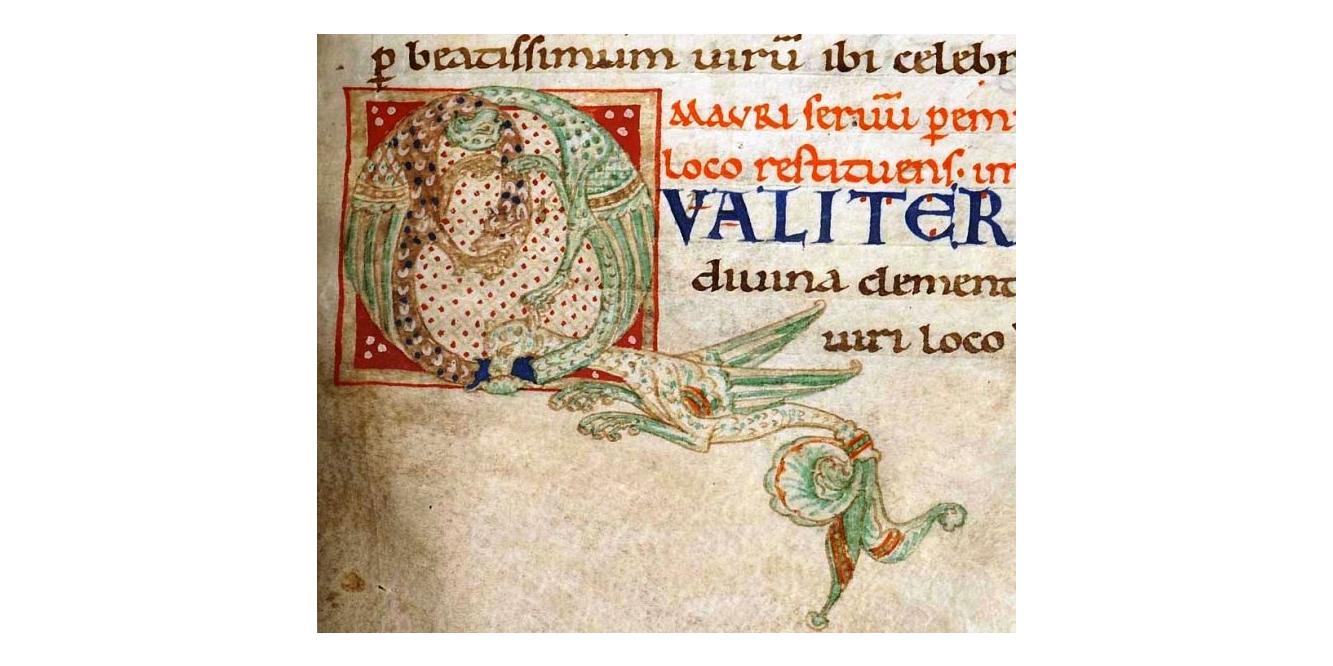 . ꝑ beatissimum uirū ibi celebr
MAVRI seruū ꝑem
loco restituens. im
QVALITER
diuina clement
uiri loco